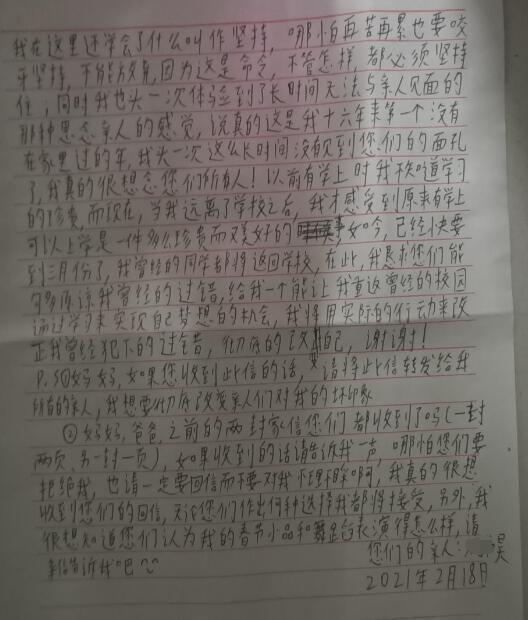 我在这里还学会了什么叫作坚持，哪怕再苦再累也要咬
牙坚持，不能放弃，因为这是命令，不管怎样都必须坚持
住，同时我也头一次体验到了长时间无法与亲人见面的
那种思念亲人的感觉，说真的这是我十六年来第一个没有
在家里过的年，我头一次这么长时间没有见到您们的面孔
了，我真的很想念您们所有人！以前有学上时我不知道学习
的珍贵，而现在，当我远离了学校之后，我才感受到原来有学上
可以上学是一件多么珍贵而又美好的事如今，已经快要
到三月份了，我曾经的同学都将返回学校，在此，我恳求您们能
够原谅我曾经的过错，给我一个能让我重返曾经的校园
通过学习来实现自己梦想的机会，我将用实际的行动来改
正我曾经犯下的过错，彻底的改变自己，谢谢！
P.S①妈妈，如果您收到此信的话，请将此信转发给我
所有的亲人，我想要彻底改变亲人们对我的坏印象
②妈妈，爸爸，之前的两封家信您们都收到了吗（一封
两页，另一封一页），如果收到的话请告诉我一声，哪怕您们要
拒绝我，也请一定要回信而不要对我不理不睬啊，我真的很想
收到您们的回信，无论您们作出何种选择我都将接受，另外，我
很想知道您们认为我的春节小品和舞蹈表演得怎么样，请
来信告诉我吧^^
您们的亲人：昊
2021年2月18日